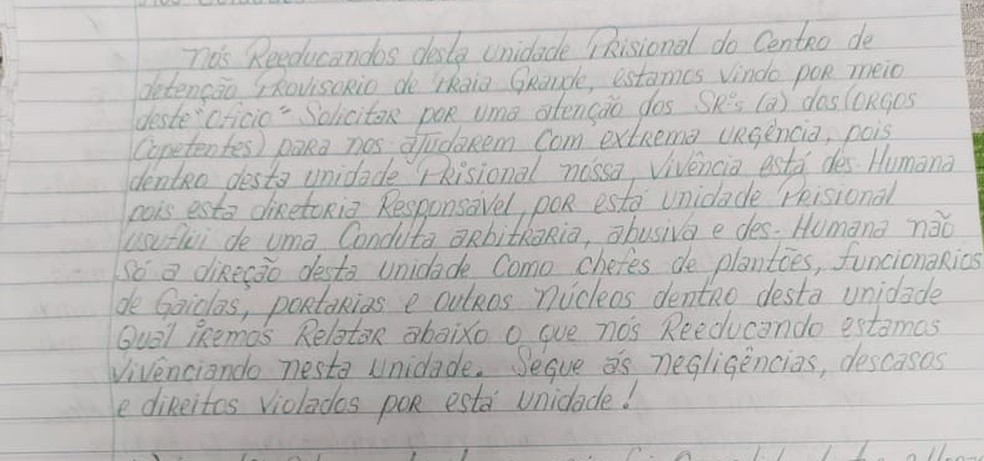 nós Reeducandos desta unidade Prisional do Centro de
detenção PRovisoRio de PRaia GRande, estamos vindo poR meio
deste "oficio" SolicitaR poR uma atenção dos SRºs (a) dos (ORGOS
Copetentes) paRa nos ajudaRem Com extRema uRgência, pois
dentRo desta unidade PRisional nóssa, vivência está des-Humana
pois esta diRetoRia Responsável, poR esta unidade PRisional
usuflui de uma Conduta aRbitRaRia, abusiva e des-Humana não
só a diReção desta unidade Como chefes de plantões, funcionaRios
de Gaiolas, poRtaRias e outRos núcleos dentRo desta unidade
Qual iRemos RelataR abaixo o que nós Reeducando estamos
vivênciando nesta unidade. Segue ás negligências, descasos
e diReitos violados poR está unidade!